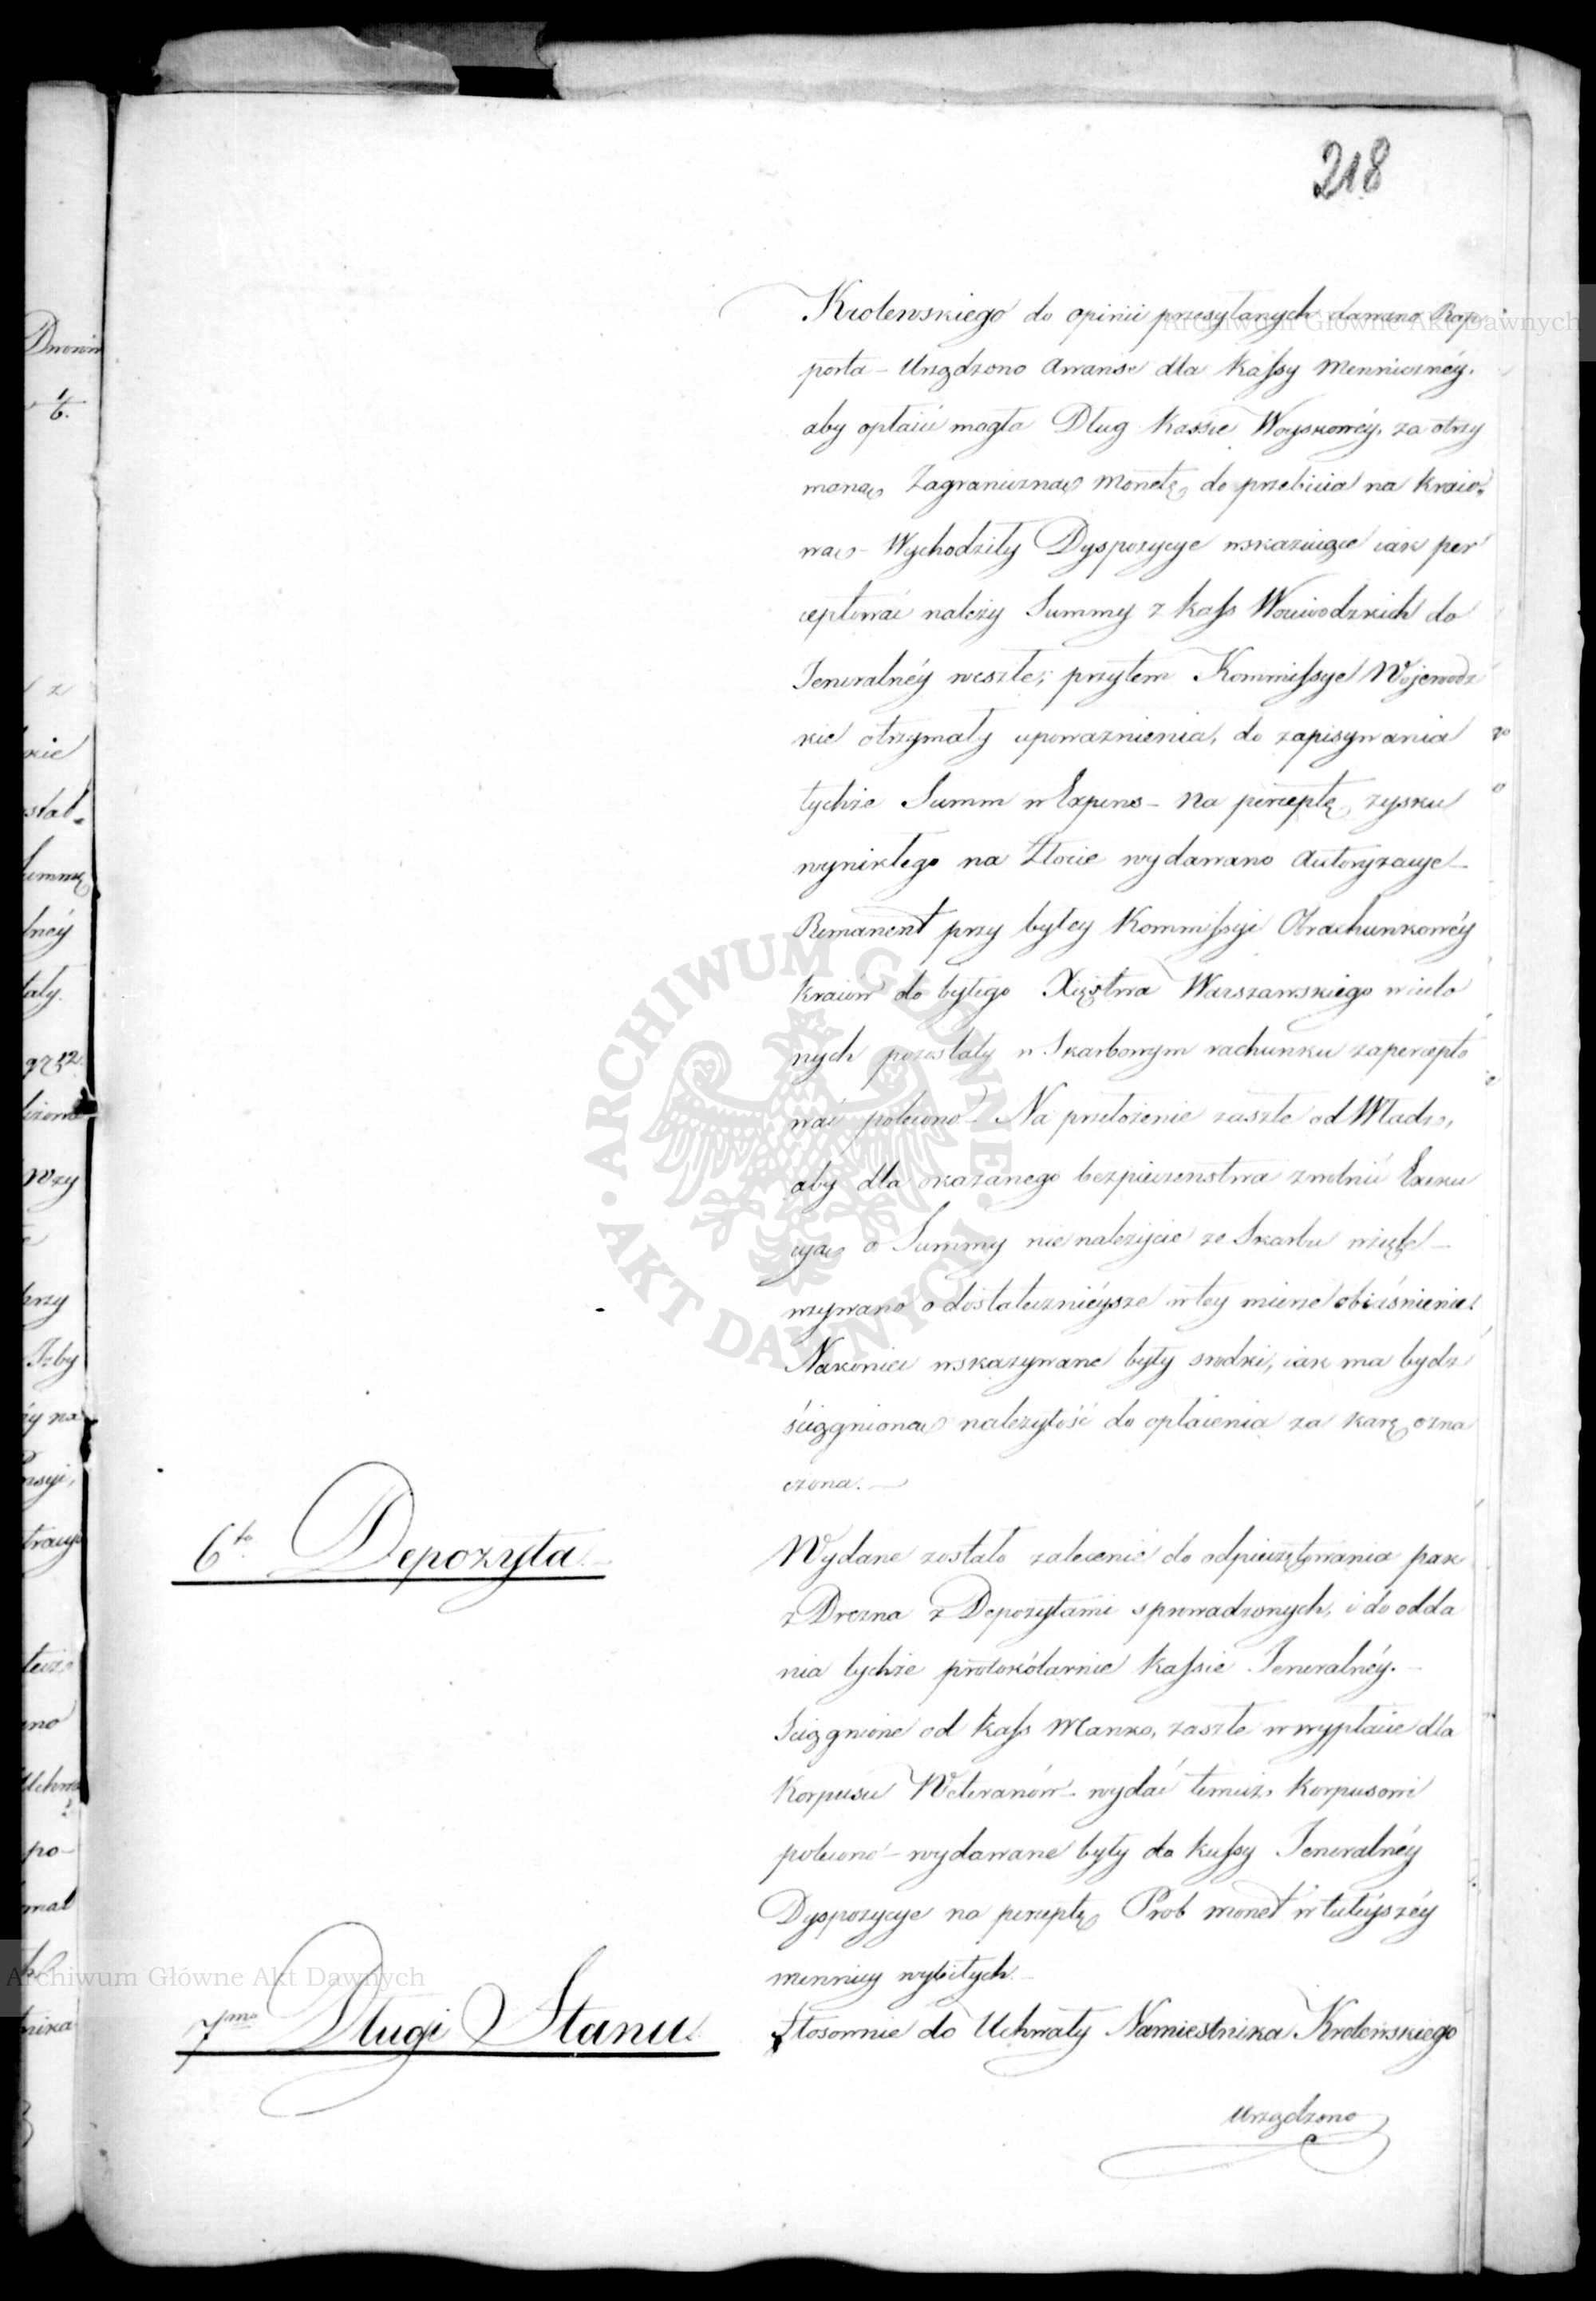 218
Krolewskiego do opinii przesyłanych dawano Rap-
porta – Urządzono awanse dla Kassy Menniczney.
aby opłacić mogła Dług Kassie Woyskowéy, za otrzy
maną Zagraniczną monetę do przebicia na kraio-
wą – Wychodziły Dyspozycye wskazuiące iak per
ceptować należy Summy z kass Woiewodzkich do
Jeneralnéy weszłe; przytem Kommissye Wojewodz
kie otrzymały upoważnienia, do zapisywania
tychże Summ w Expens – Na perceptę zysku
wynikłego na Złocie wydawano autoryzacye –
Remanent przy byłey Kommissyi Obrachunkowéy
Kraiów do byłego Xięstwa Warszawskiego wcielo
nych pozostały w Skarbowym rachunku zapercepto
wać polecono – Na przełożenie zaszłe od Władz,
aby dla okazanego bezpieczenstwa zwolnić Exeku
cyą o Summy nienależycie ze Skarbu wzięte –
wzywano o dostatecznieysze w tey mierze obiaśnienie.
Nakoniec wskazywane były srodki, iak ma bydz
ściągnioną należytość do opłacenia za karę ozna
czona. –
6to Depozyta
Wydane zostało zalecenie do odpieczętowania pak
z Drezna z Depozytami sprowadzonych, i do odda
nia tychże protokólarnie Kassie Jeneralnéy. –
Sciągnione od Kass Manko, zaszłe w wypłacie dla
Korpusu Weteranów – wydać temuż Korpusowi
polecono – wydawane były do Kassy Jeneralnéy
Dyspozycye na perceptę Prob monet w tuteyszéy
mennicy wybitych. –
7mo Długi Stanu
Stosownie do Uchwały Namiestnika Krolewskiego
Urządzono
Archiwum Główne Akt Dawnych
Archiwum Główne Akt Dawnych
ARCHIWUM GŁÓWNE AKT DAWNYCH